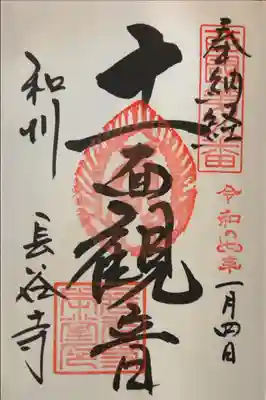 奉納経
令和
一月四日
十一面觀音
和州 長谷寺